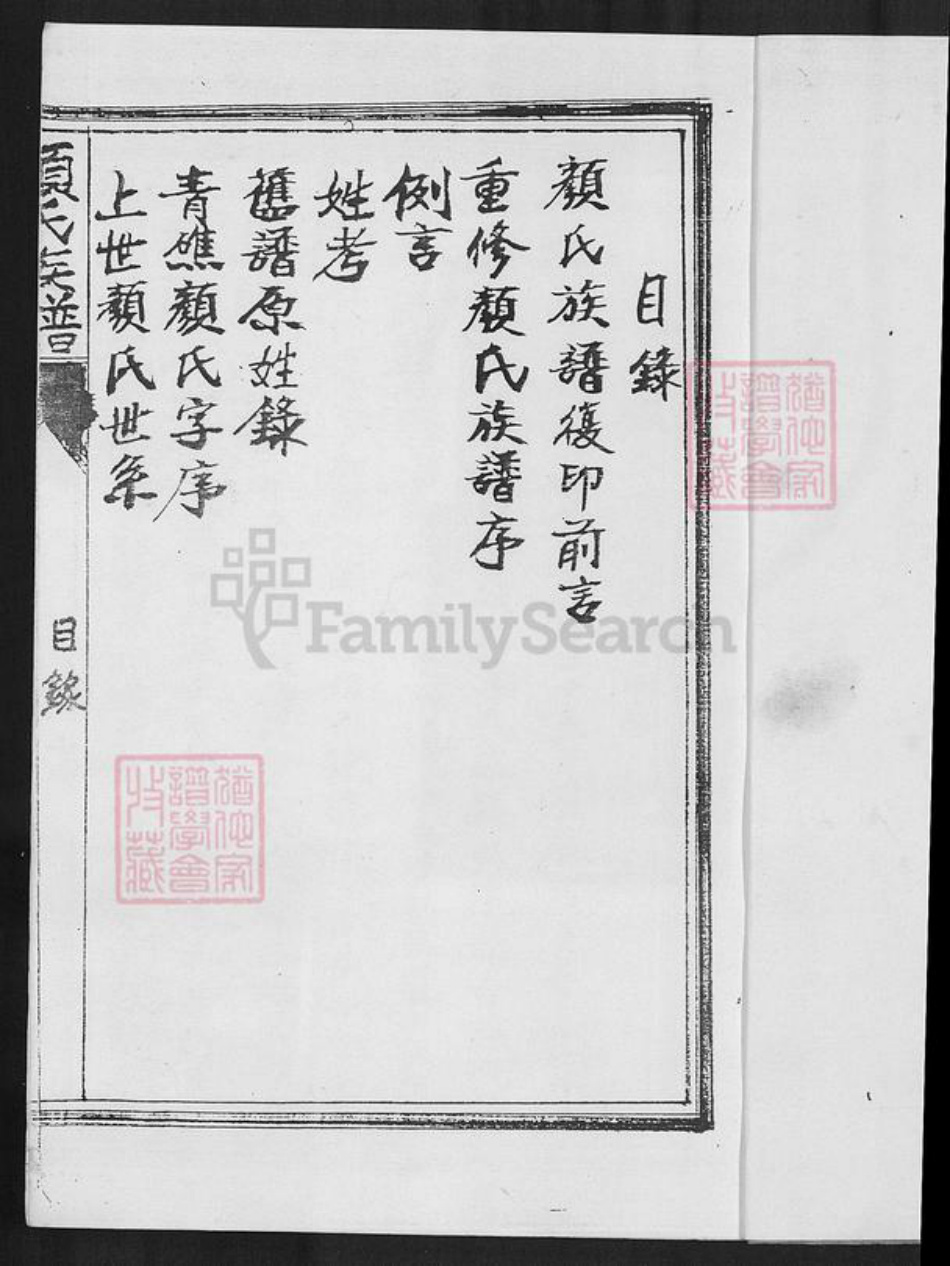 目錄
顏氏族譜復印前言
重修顏氏族譜序
例言
姓考
舊譜原姓錄
青礁顏氏字序
上世顏氏世系
顏氏族譜
目錄
譜學會
收藏
譜學會
收藏
FamilySearch